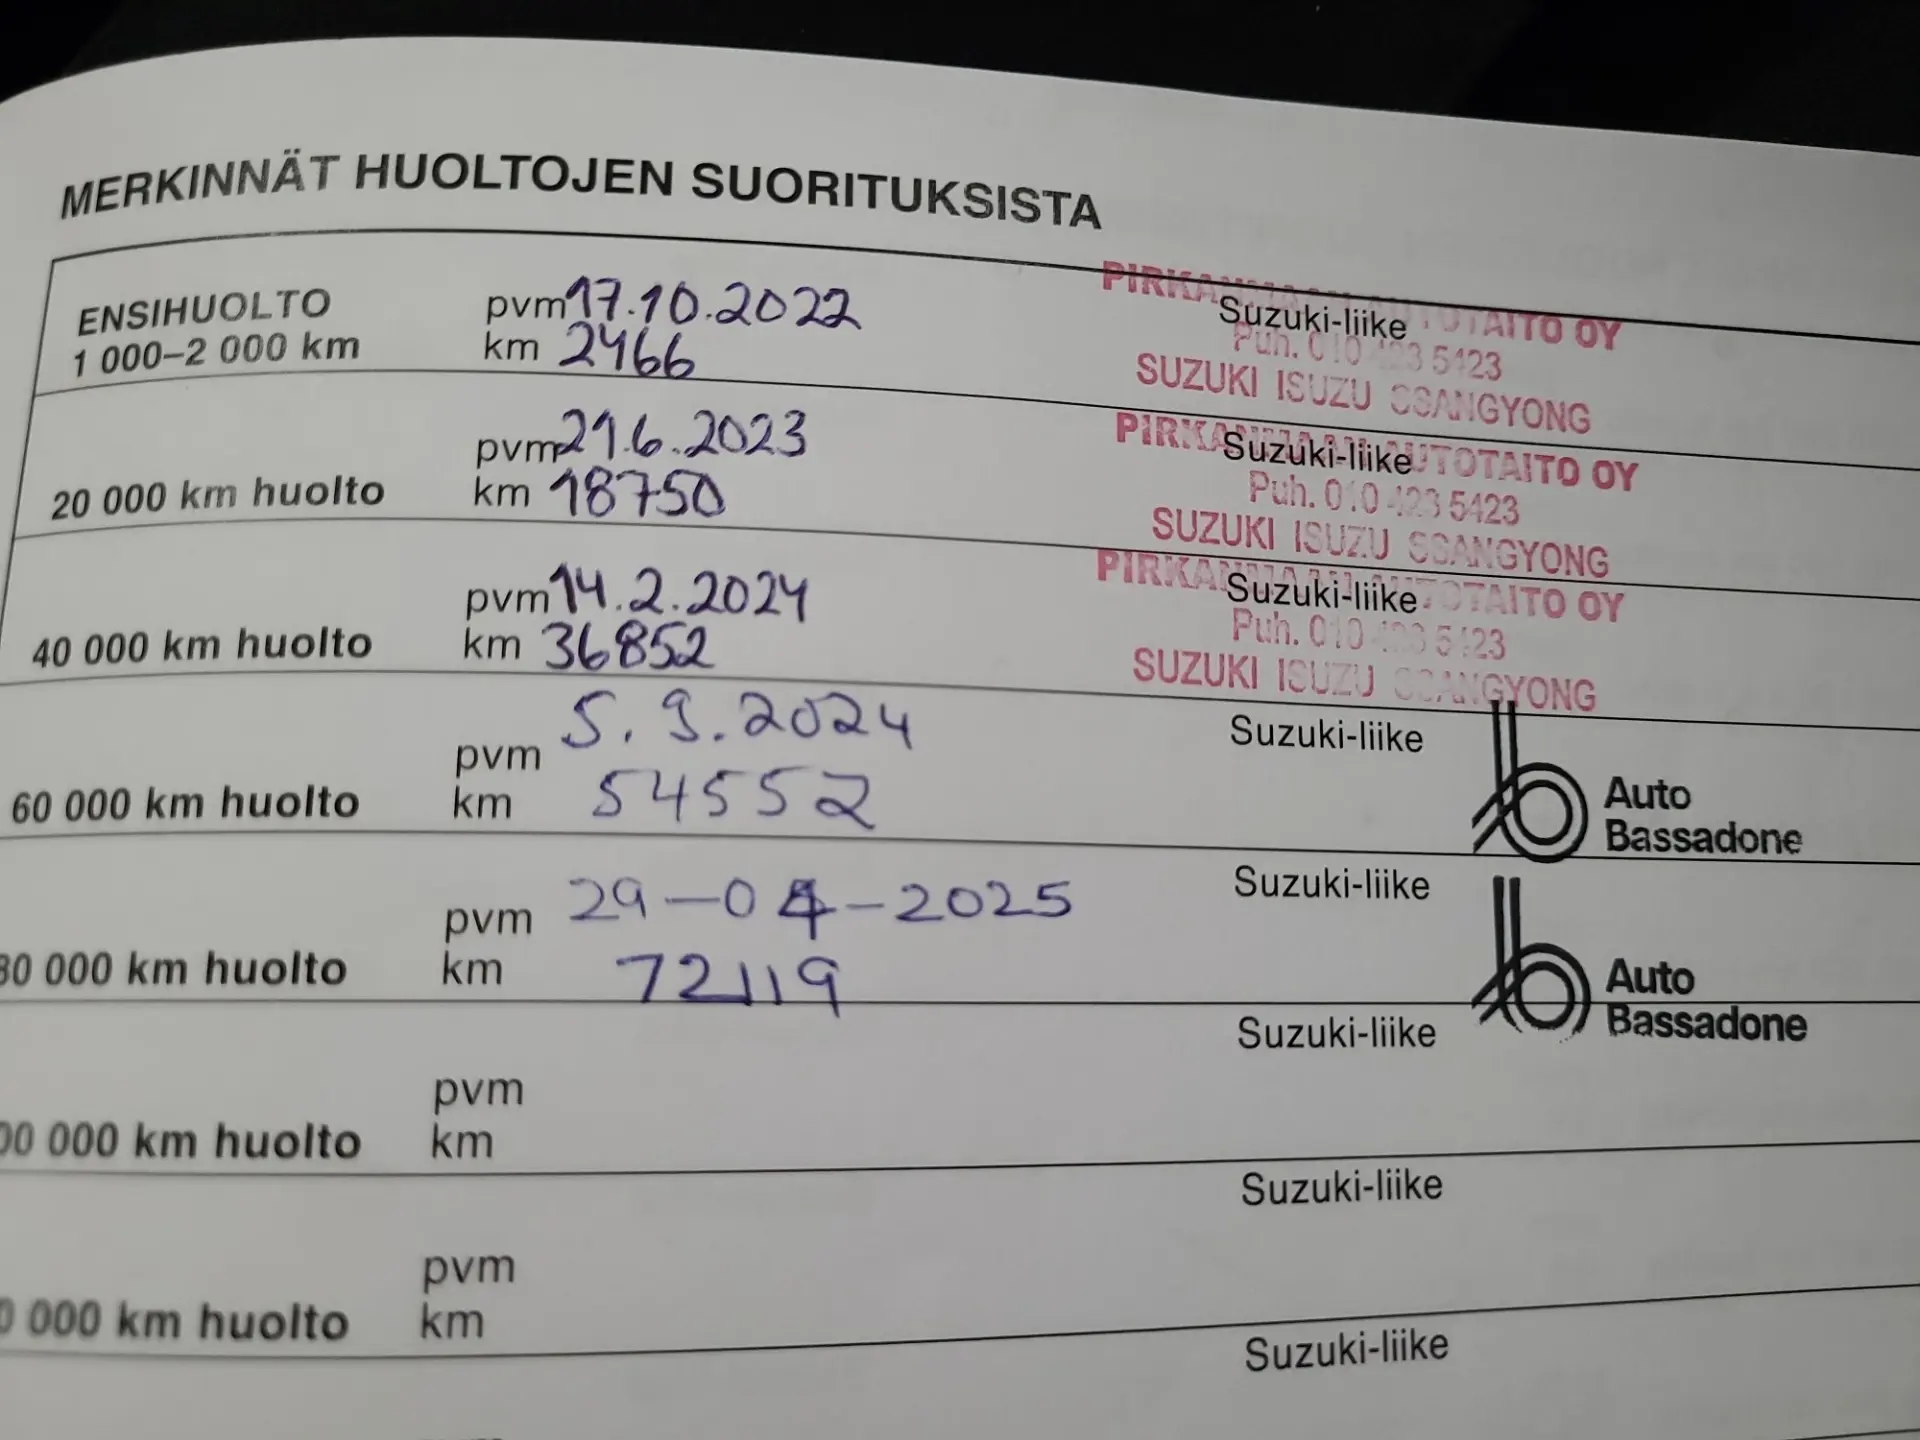 MERKINNÄT HUOLTOJEN SUORITUKSISTA
ENSIHUOLTO
1 000–2 000 km
pvm 17.10.2022
km 2466
Suzuki-liike
PIRKANMAAN AUTOTAITO OY
Puh. 010 423 5423
SUZUKI ISUZU SSANGYONG
20 000 km huolto
pvm 21.6.2023
km 18750
Suzuki-liike
PIRKANMAAN AUTOTAITO OY
Puh. 010 423 5423
SUZUKI ISUZU SSANGYONG
40 000 km huolto
pvm 14.2.2024
km 36852
Suzuki-liike
PIRKANMAAN AUTOTAITO OY
Puh. 010 423 5423
SUZUKI ISUZU SSANGYONG
60 000 km huolto
pvm 5.9.2024
km 54552
Suzuki-liike
Auto
Bassadone
80 000 km huolto
pvm 29-04-2025
km 72119
Suzuki-liike
Auto
Bassadone
00 000 km huolto
pvm
km
Suzuki-liike
0 000 km huolto
pvm
km
Suzuki-liike
Suzuki-liike